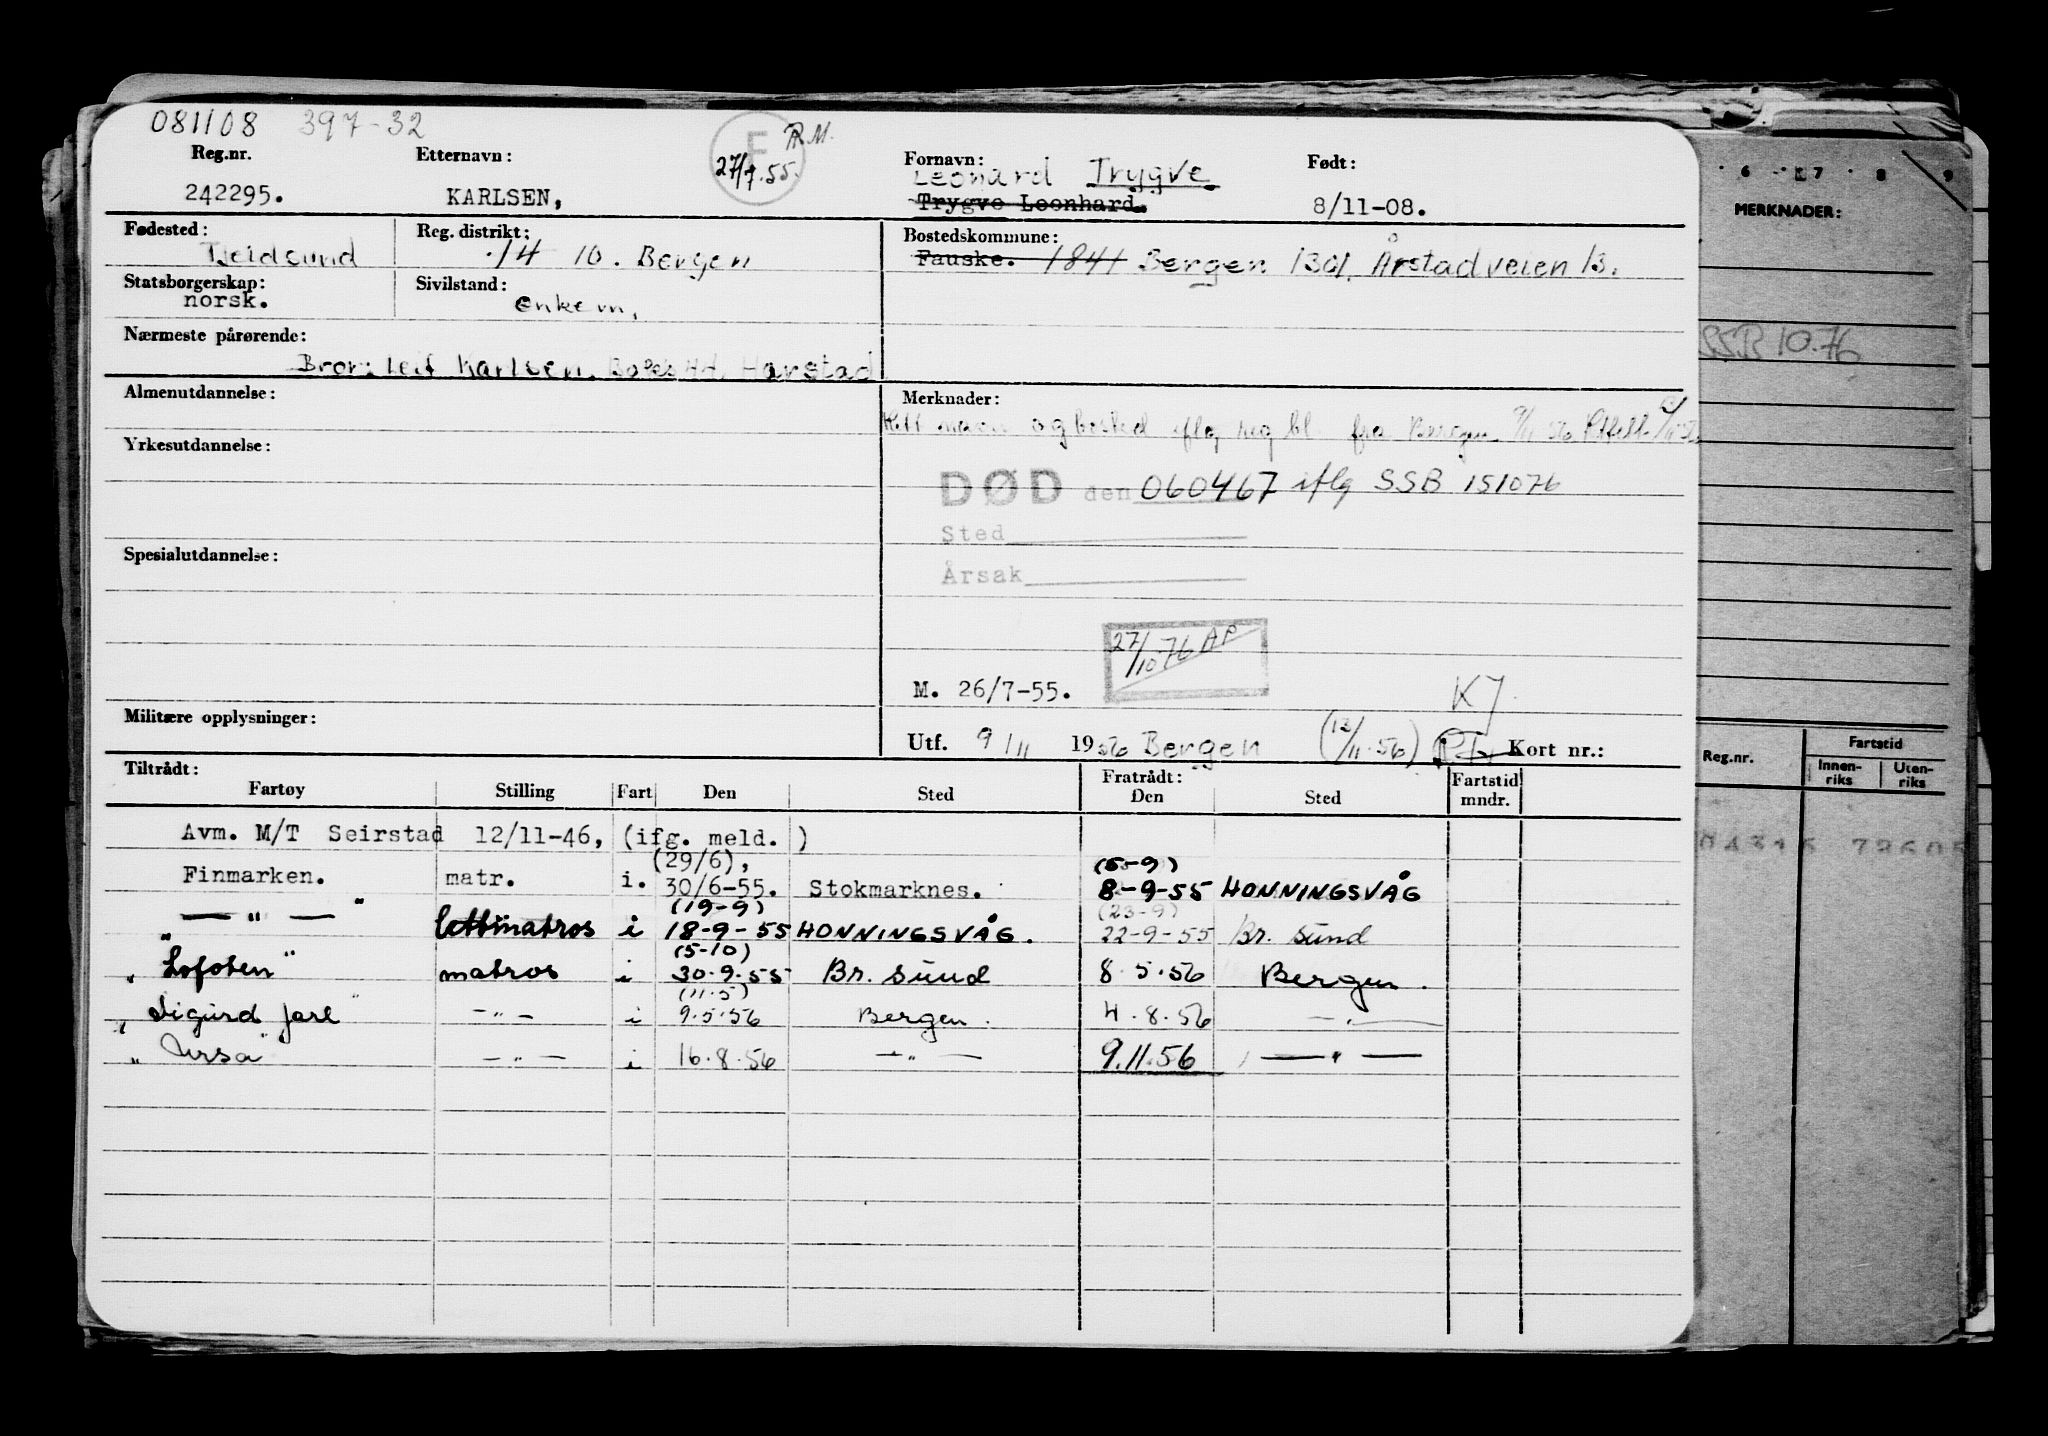 081108 397-32
P.M.
E
27/7.55.
Reg.nr. Etternavn: Fornavn: Født:
Leonard Trygve
242295. KARLSEN, Trygve Leonhard. 8/11-08.
Fødested: Reg. distrikt: Bostedskommune:
Tjeldsund 14 10. Bergen Fauske. 1841 Bergen 1301, Årstadveien 13.
Statsborgerskap: Sivilstand:
norsk. enkem,
Nærmeste pårørende:
Bror: Leif Karlsen, Harstad
Almenutdannelse: Merknader:
Rett navn og bosted iflg. reg bl. fra Bergen 9/11 56
Yrkesutdannelse:
DØD den 060467 iflg SSB 151076
Sted
Spesialutdannelse:
Årsak
27/10-76 AP
M. 26/7-55. KJ
Militære opplysninger:
Utf. 9/11 1956 Bergen (12/11-56) Kort nr.:
Tiltrådt: Fratrådt:
Fartøy Stilling Fart Den Sted Den Sted Fartstid mndr.
Avm. M/T Seirstad 12/11-46, (ifg. meld. )
(29/6), (5-9)
Finmarken. matr. i. 30/6-55. Stokmarknes. 8-9-55 HONNINGSVÅG
(19-9) (23-9)
— " — lettmatros i 18-9-55 HONNINGSVÅG. 22-9-55 Br. Sund
(5-10)
" Lofoten" matros i 30.9.55 Br. Sund 8.5.56 Bergen.
(11.5)
" Sigurd Jarl" — " — i 9.5.56 Bergen. 4.8.56 — " —
" Ursa" — " — i 16.8.56 — " — 9.11.56 — " —
6 7 8 9
MERKNADER:
SSB 10.76
Reg.nr. Fartstid
Innen-riks Uten-riks